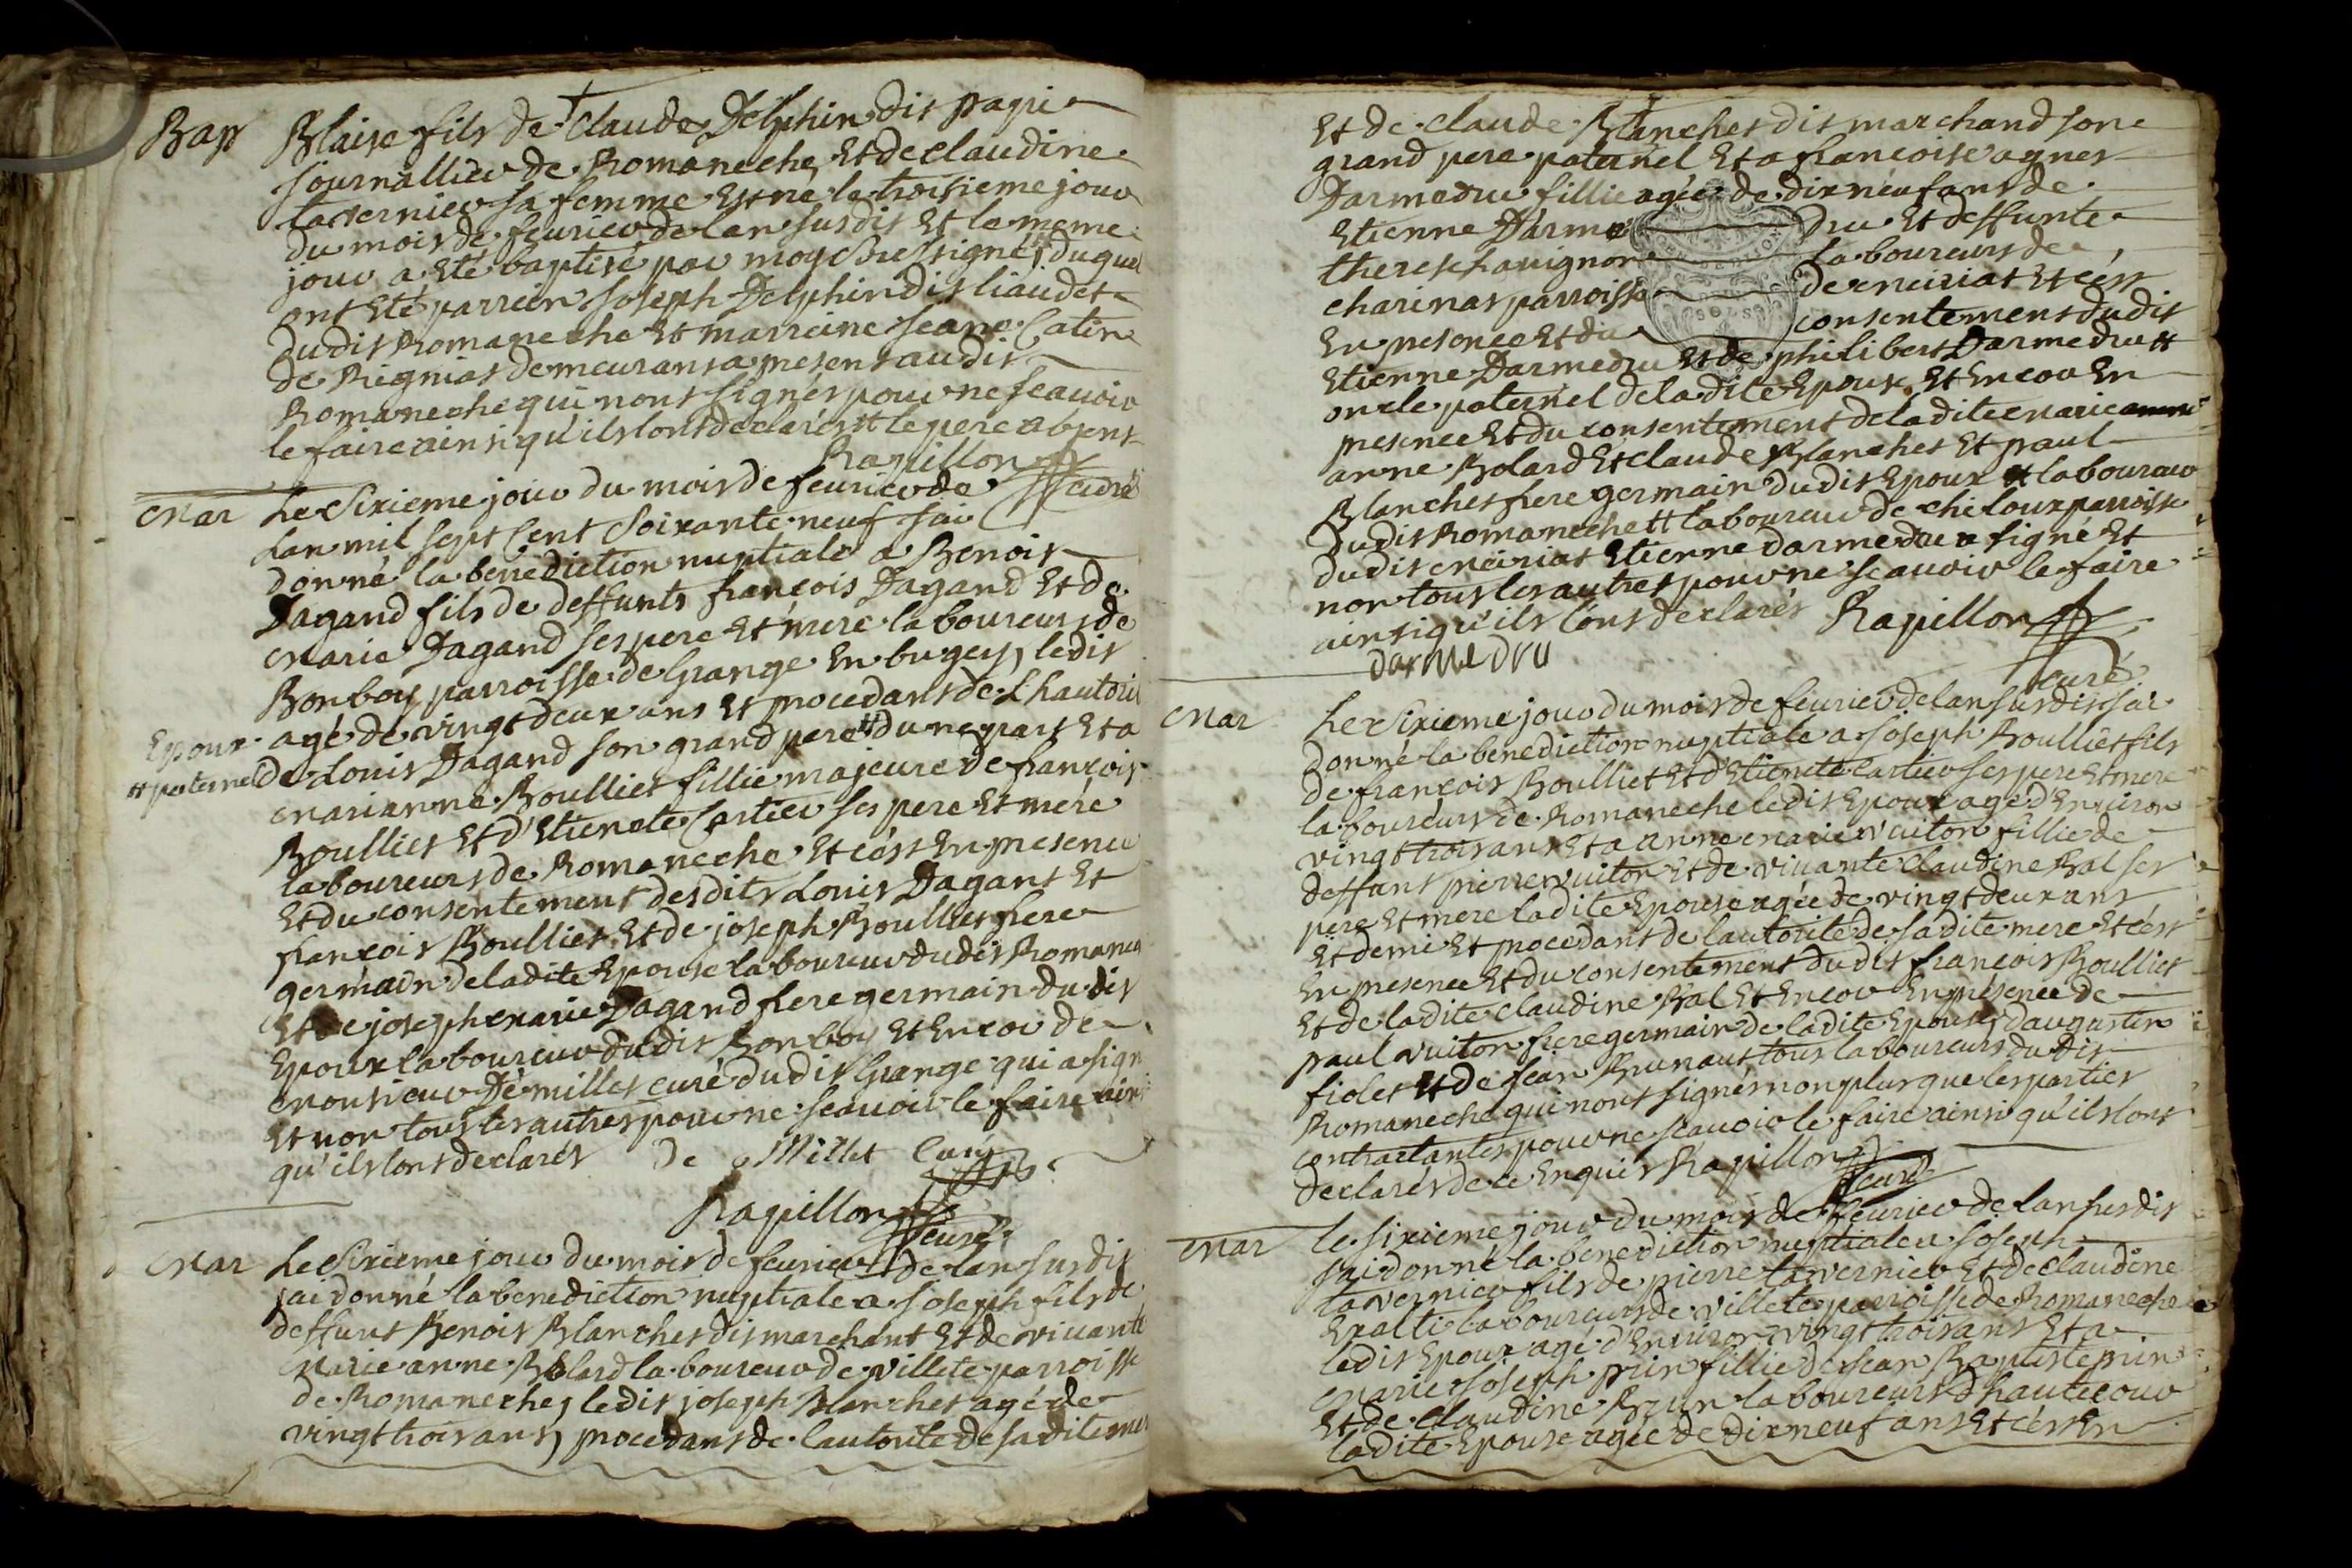 Bap
Blaise fils de Claude Delphin dit papi
journallier de Romaneche, Et de Claudine
tavernier sa femme Est né le troisieme jour
du mois de feurier de lan susdit Et le meme
jour a Eté baptisé par moy Soussigné, duquel
ont Eté parrein Joseph Delphin dit liaudet
dudit Romaneche Et marreine Jeane Catin
de Rigniat demeurant a present audit
Romaneche qui nont signés pour ne scauoir
le faire ainsi qu'ils lont declarés tt le pere absent
Rapillon
curé
Mar
Le Sixieme jour du mois de feurier de
Lan mil sept Cent Soixante neuf jai
donné la benediction nuptiale a Benoit
Dagand fils de deffunts francois Dagand Et de
Marie Dagand ses pere Et mere laboureurs de
Bonboy parroisse de Grange En bugey, ledit
Epoux agé de vingt deux ans Et procedant de Lhautorit
tt paternel de Louis Dagand son grand pere tt dune part Et a
Marianne Boulliet fillie majeure de francois
Boulliet Et d'Etienete Cartier ses pere Et mere
laboureurs de Romaneche Et cést En presence
Et du consentement desdits Louis Dagant Et
francois Boulliet Et de joseph Boulliet frere
germain de ladite Epouse laboureur dudit Romanec
Et de joseph marie Dagand frere germain dudit
Epoux laboureur dudit Bonboy Et Encor de
Monsieur Démillet curé dudit Grange qui a sign
Et non tous les autres pour ne scauoir le faire ains
qu'ils lont declarés De Millet Curé
Rapillon
curé
Mar
Le Sixieme jour du mois de feurier de lan susdit
jai donné la benediction nuptiale a Joseph fils de
deffunt Benoit Blanchet dit marchant Et de viuante
Marie anne Bolard laboureur de villete parroisse
de Romaneche, ledit joseph Blanchet agé de
vingt trois ans, procedant de lautorité de sa dite mer
Et de Claude Blanchet dit marchand son
grand pere paternel Et a francoise agnes
Darmedru fillie agée de dix néuf ans de
Etienne Darme dru Et deffunte
therese havignon laboureurs de
charinat parroisse de meiriat Et cést
En presence Et du consentement dudit
Etienne Darmedru Et de philibert Darmedru tt
oncle paternel de ladite Epouse Et Encor En
presence Et du consentement de ladite Marie
anne Bolard Et Claude Blanchet Et paul
Blanchet frere germain dudit Epoux tt laboureur
dudit Romaneche tt laboureur de chiloux parroisse
dudit meiriat Etienne darmedru a signé Et
non tous les autres pour ne scauoir le faire
ainsi qu'ils lont declarés Rapillon
darmedru
curé
Mar
Le Sixieme jour du mois de feurier de lan susdit jai
donné la benediction nuptiale a Joseph Boulliet fils
de francois Boulliet Et d'Etienete Cartier ses pere Et mere
laboureurs de Romaneche ledit Epoux agé d'Enuiron
vingt trois ans Et a Anne marie vuiton fillie de
deffunt pierre vuiton Et de viuante Claudine Bal ses
pere Et mere ladite Epouse agée de vingt deux ans
Et demi Et procedant de lautorité de sa dite mere Et cést
En presence Et du consentement dudit francois Boulliet
Et de ladite Claudine Bal Et Encor En presence de
paul vuiton frere germain de ladite Epouse, daugustin
fiolet Et de Jean Brunant tous laboureurs dudit
Romaneche qui nont signés non plus que les parties
contractantes pour ne scauoir le faire ainsi qu'ils lont
declarés de ce Enquis Rapillon
curé
Mar
Le Sixieme jour du mois de feurier de lan susdit
jai donné la benediction nuptiale a Joseph
tavernier fils de pierre tavernier Et de Claudine
Epalti laboureurs de villete parroisse de Romaneche
ledit Epoux agé d'Enuiron vingt trois ans Et a
Marie Joseph prin fillie de Jean Baptiste prin
Et de Claudine Brun laboureurs d'hautecour
ladite Epouse agée de dix neuf ans Et cést En